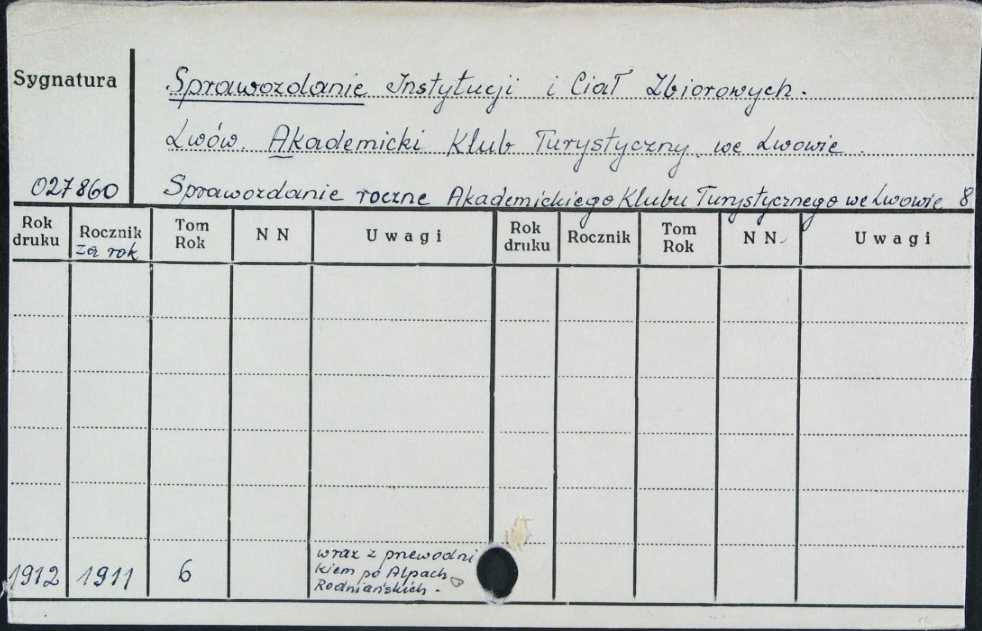 Sygnatura
Sprawozdanie Instytucji i Ciał Zbiorowych.
Lwów. Akademicki Klub Turystyczny we Lwowie.
027860 Sprawozdanie roczne Akademickiego Klubu Turystycznego we Lwowie 8
Rok druku Rocznik za rok Tom Rok N N Uwagi Rok druku Rocznik Tom Rok N N Uwagi
1912 1911 6 wraz z przewodni
kiem po Alpach
Rodniańskich.